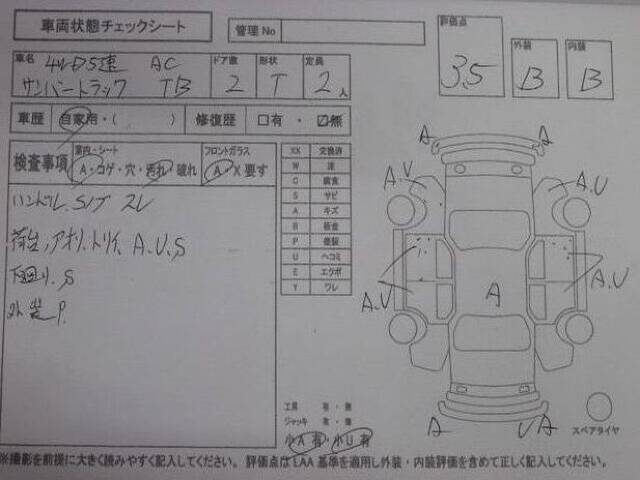 車両状態チェックシート
管理No
評価点 3.5
外装 B
内装 B
車名 4WD5速 AC
サンバートラック TB
ドア数 2
形状 T
定員 2人
車歴 自家用・( )
修復歴 □有・☑無
検査事項
室内・シート
A・コゲ・穴・汚れ・破れ
フロントガラス
A・X要す
ハンドル、S/ブ スレ
荷台、アオリ、トリイ、A、U、S
下回り、S
外装P.
XX 交換済
W 波
C 腐食
S サビ
A キズ
B 板金
P 塗装
U ヘコミ
E エクボ
Y ワレ
A
A
A.U
A.U
A.U
A
A.U
A
UA
工具 有・無
ジャッキ 有・無
小A有・小U有
スペアタイヤ
※撮影を前提に大きく読みやすく記入してください。評価点はLAA基準を適用し外装・内装評価を含めて正しく記入してください。